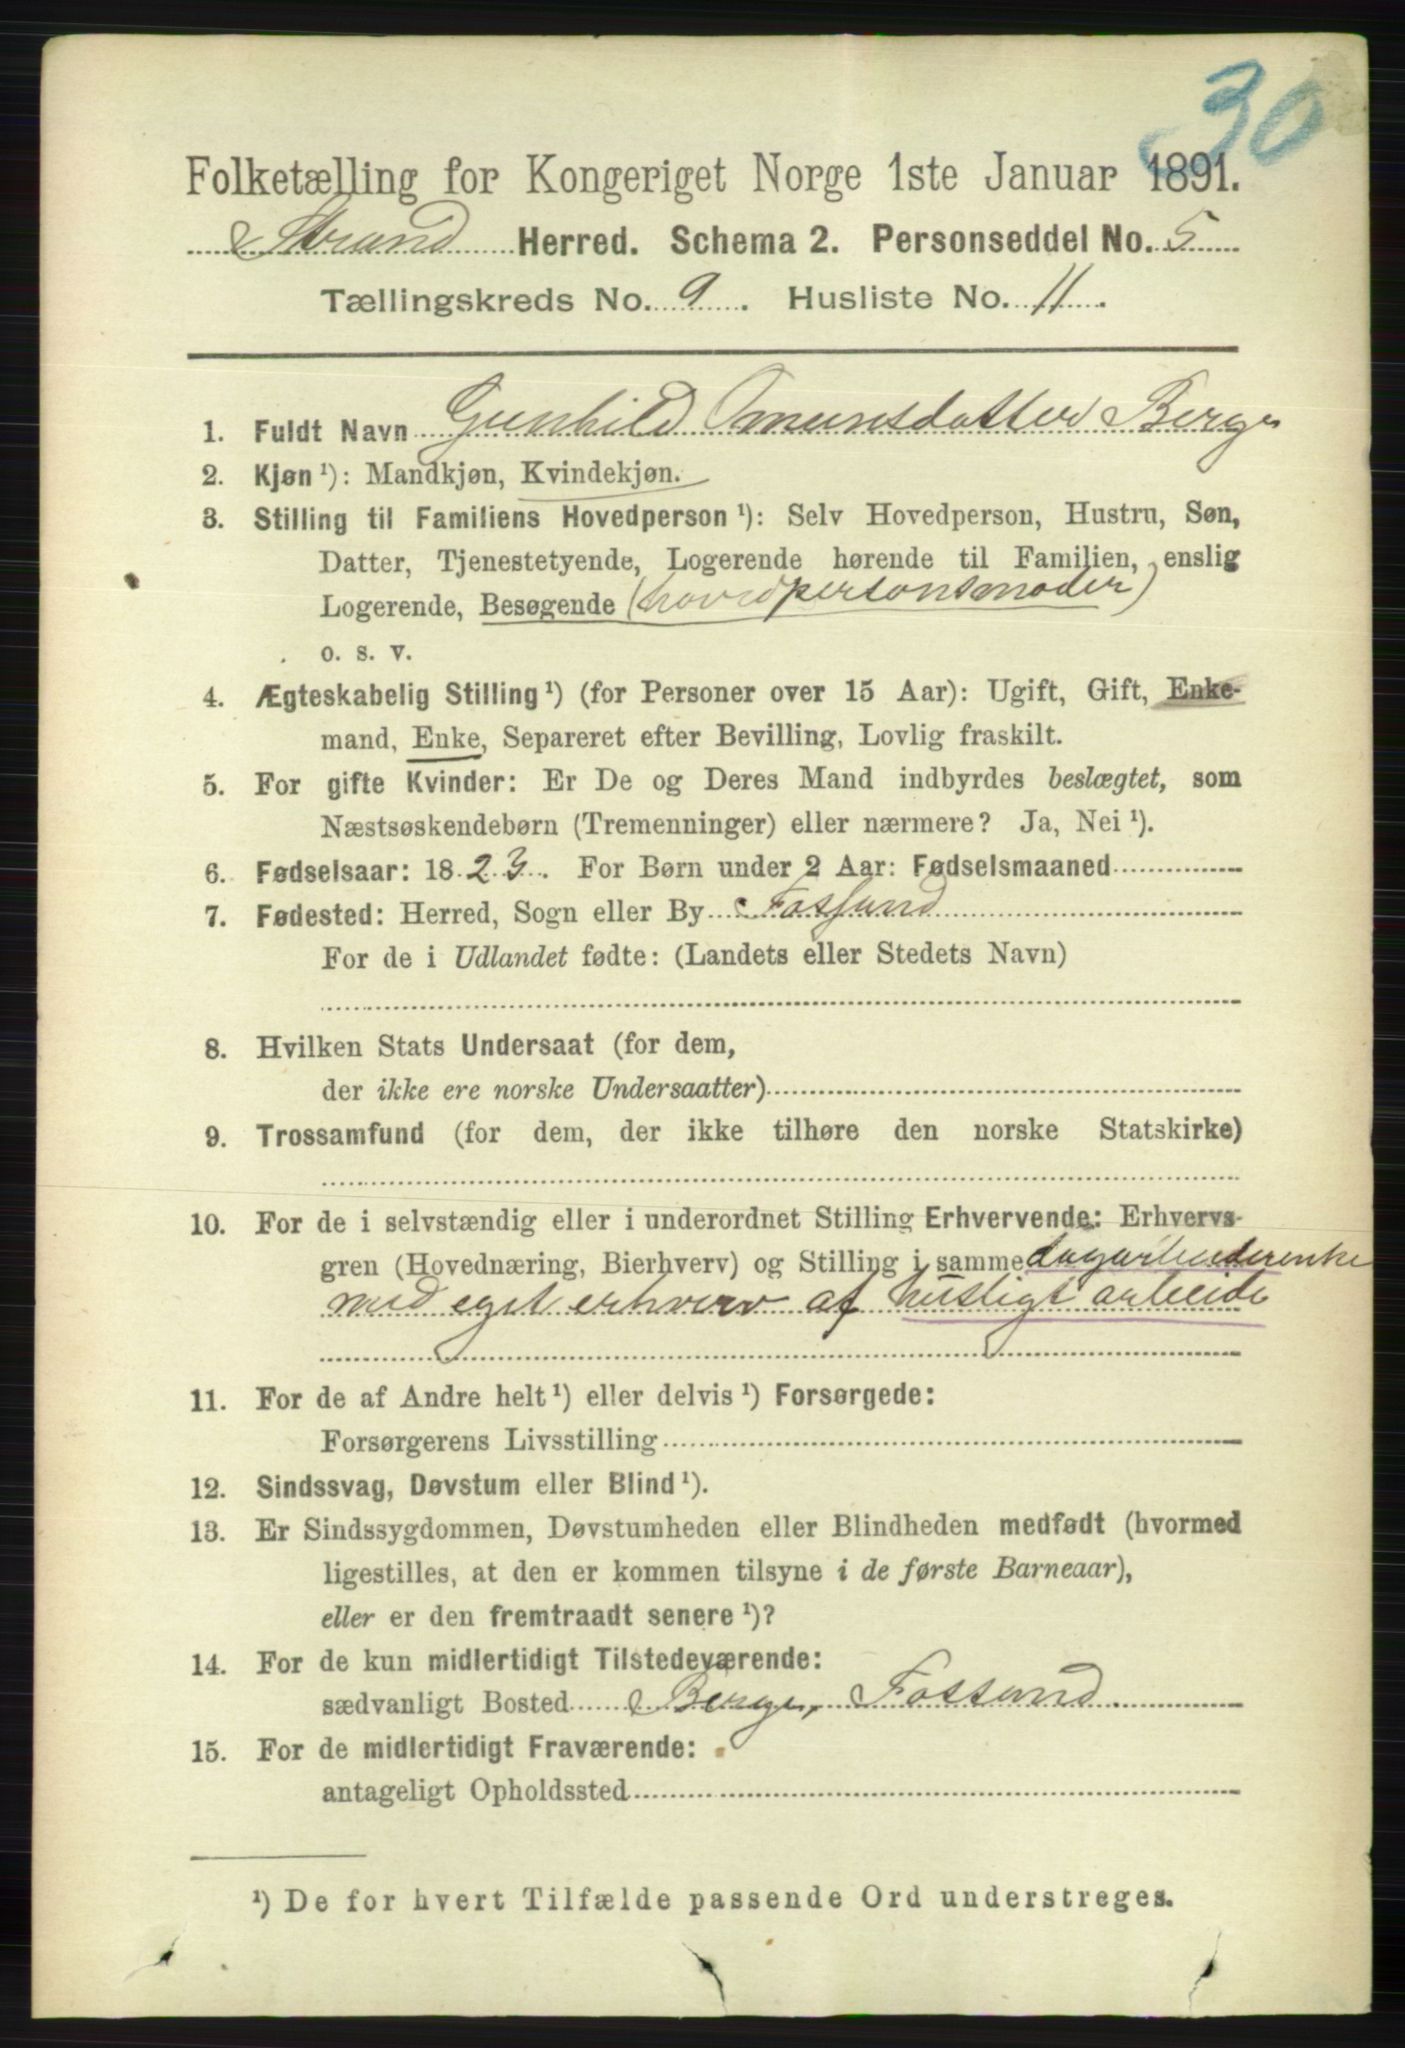 30
Folketælling for Kongeriget Norge 1ste Januar 1891.
Strand Herred. Schema 2. Personseddel No. 5
Tællingskreds No. 9. Husliste No. 11.
1. Fuldt Navn Gunhild Omunsdatter Berge
2. Kjøn ¹): Mandkjøn, Kvindekjøn.
3. Stilling til Familiens Hovedperson ¹): Selv Hovedperson, Hustru, Søn,
Datter, Tjenestetyende, Logerende hørende til Familien, enslig
Logerende, Besøgende (hovedpersonsmoder)
o. s. v.
4. Ægteskabelig Stilling ¹) (for Personer over 15 Aar): Ugift, Gift, Enke-
mand, Enke, Separeret efter Bevilling, Lovlig fraskilt.
5. For gifte Kvinder: Er De og Deres Mand indbyrdes beslægtet, som
Næstsøskendebørn (Tremenninger) eller nærmere? Ja, Nei ¹).
6. Fødselsaar: 1823. For Børn under 2 Aar: Fødselsmaaned
7. Fødested: Herred, Sogn eller By Fossund
For de i Udlandet fødte: (Landets eller Stedets Navn)
8. Hvilken Stats Undersaat (for dem,
der ikke ere norske Undersaatter)
9. Trossamfund (for dem, der ikke tilhøre den norske Statskirke)
10. For de i selvstændig eller i underordnet Stilling Erhvervende: Erhvervs-
gren (Hovednæring, Bierhverv) og Stilling i samme dagarbeiderenke
med eget erhverv af husligt arbeide
11. For de af Andre helt ¹) eller delvis ¹) Forsørgede:
Forsørgerens Livsstilling
12. Sindssvag, Døvstum eller Blind ¹).
13. Er Sindssygdommen, Døvstumheden eller Blindheden medfødt (hvormed
ligestilles, at den er kommen tilsyne i de første Barneaar),
eller er den fremtraadt senere ¹)?
14. For de kun midlertidigt Tilstedeværende:
sædvanligt Bosted Berge, Fossund
15. For de midlertidigt Fraværende:
antageligt Opholdssted
¹) De for hvert Tilfælde passende Ord understreges.